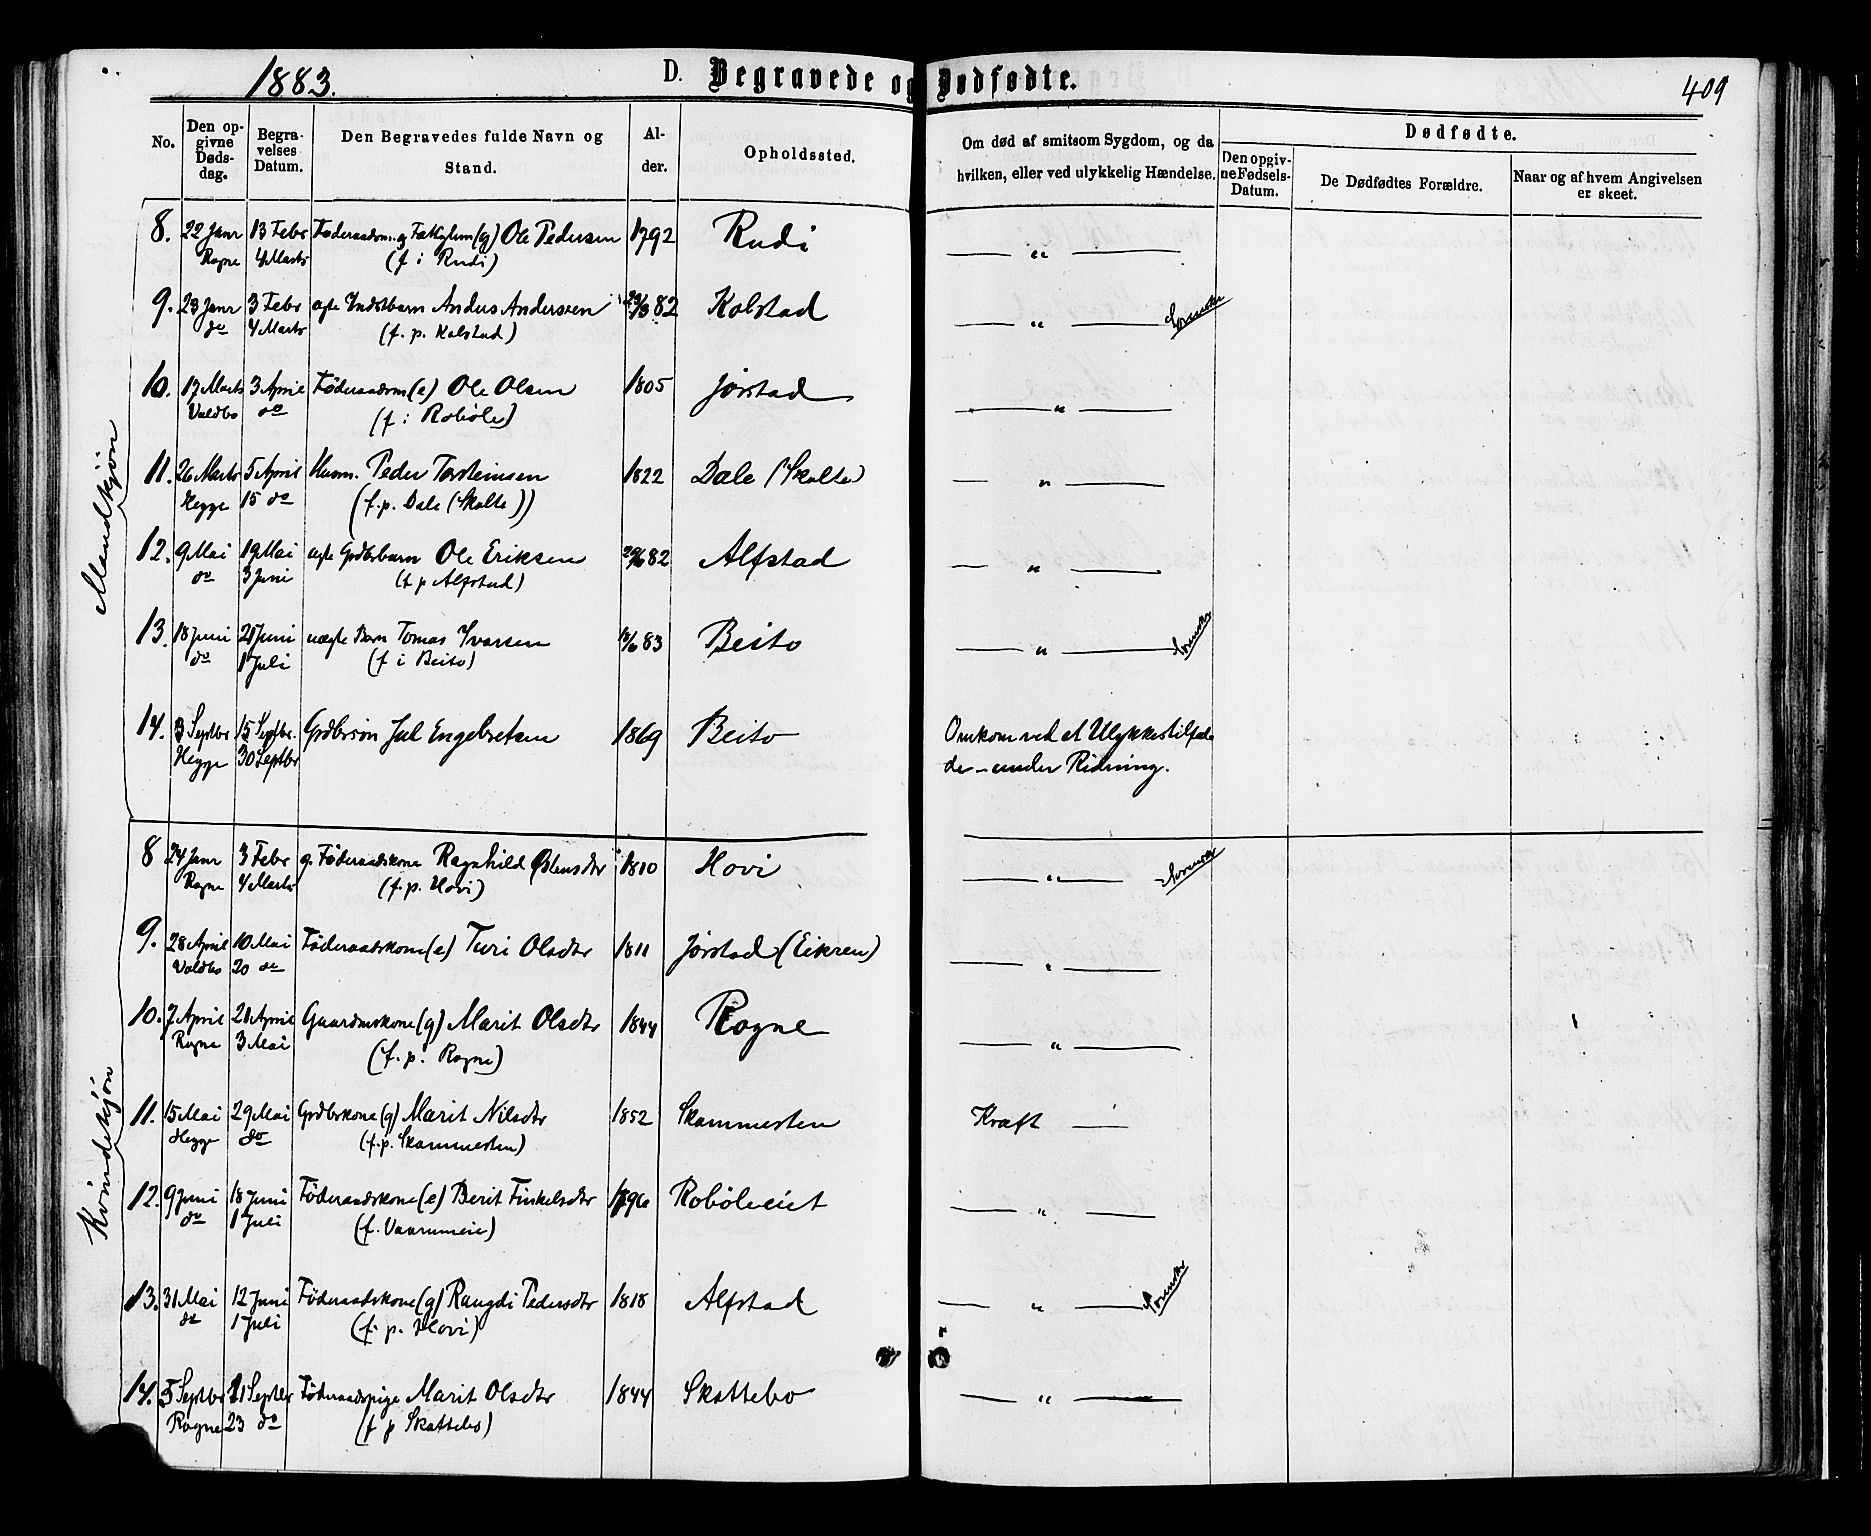 1883.
D. Begravede og Dødfødte.
409
No. Den opgivne Dødsdag. Begravelses Datum. Den Begravedes fulde Navn og Stand. Alder. Opholdssted. Om død af smitsom Sygdom, og da hvilken, eller ved ulykkelig Hændelse. Dødfødte. Den opgivne Fødsels-Datum. De Dødfødtes Forældre. Naar og af hvem Angivelsen er skeet.
Mandkjøn
8. 22 Janr 13 Febr Føderaadsm. og (g) Ole Pedersen 1792 Rudi — " —
Rogne 4 Marts (f i Rudi)
9. 23 Janr 3 Febr ægte Indstbarn Anders Andersen 82 Kolstad — " —
do 4 Marts (f. p. Kolstad)
10. 17 Marts 3 April Føderaadsm (e) Ole Olsen 1805 Jørstad — " —
Valdbo do (f i Robøle)
11. 26 Marts 5 April Husm. Peder Torsteinsen 1822 Dale (Skolte) — " —
Hegge 15 do (f. p. Dale (Skolte))
12. 9 Mai 19 Mai ægte Grdbrbarn Ole Eriksen 82 Alfstad — " —
do 3 Juni (f p Alfstad)
13. 18 Juni 21 Juni uægte Barn Tomas Ivarsen 83 Beito — " —
do 1 Juli (f i Beito)
14. 3 Septbr 15 Septbr. Grdbrsøn Jul Engebretsen 1869 Beito Omkom ved et Ulykkestilfæl-
Hegge 30 Septbr de – under Ridning.
Kvindekjøn
8 24 Janr 3 Febr g. Føderaadskone Ragnhild Østensdtr 1810 Hovi — " —
Rogne 4 Marts (f. p. Hovi)
9. 28 April 10 Mai Føderaadskone (e) Turi Olsdtr 1811 Jørstad (Eikren) — " —
Valdbo 20 do
10. 7 April 21 April Gaardmskone (g) Marit Olsdtr 1844 Rogne — " —
Rogne 3 Mai (f. p. Rogne)
11. 15 Mai 29 Mai Grdbrkone (g) Marit Nilsdtr 1852 Skammesten Kræft —
Hegge do (f. p. Skammesten)
12. 9 Juni 18 Juni Føderaadskone (e) Berit Finkelsdtr 1796 Robøleeiet — " —
do 1 Juli (f. Vaarumeie)
13. 31 Mai 12 Juni Føderaadskone (g) Rangdi Pedersdtr 1818 Alfstad — " —
do 1 Juli (f. p. Hovi)
14. 5 Septbr 11 Septbr Føderaadspige Marit Olsdtr 1844 Skattebo — " —
Rogne 23 do (f p Skattebo)